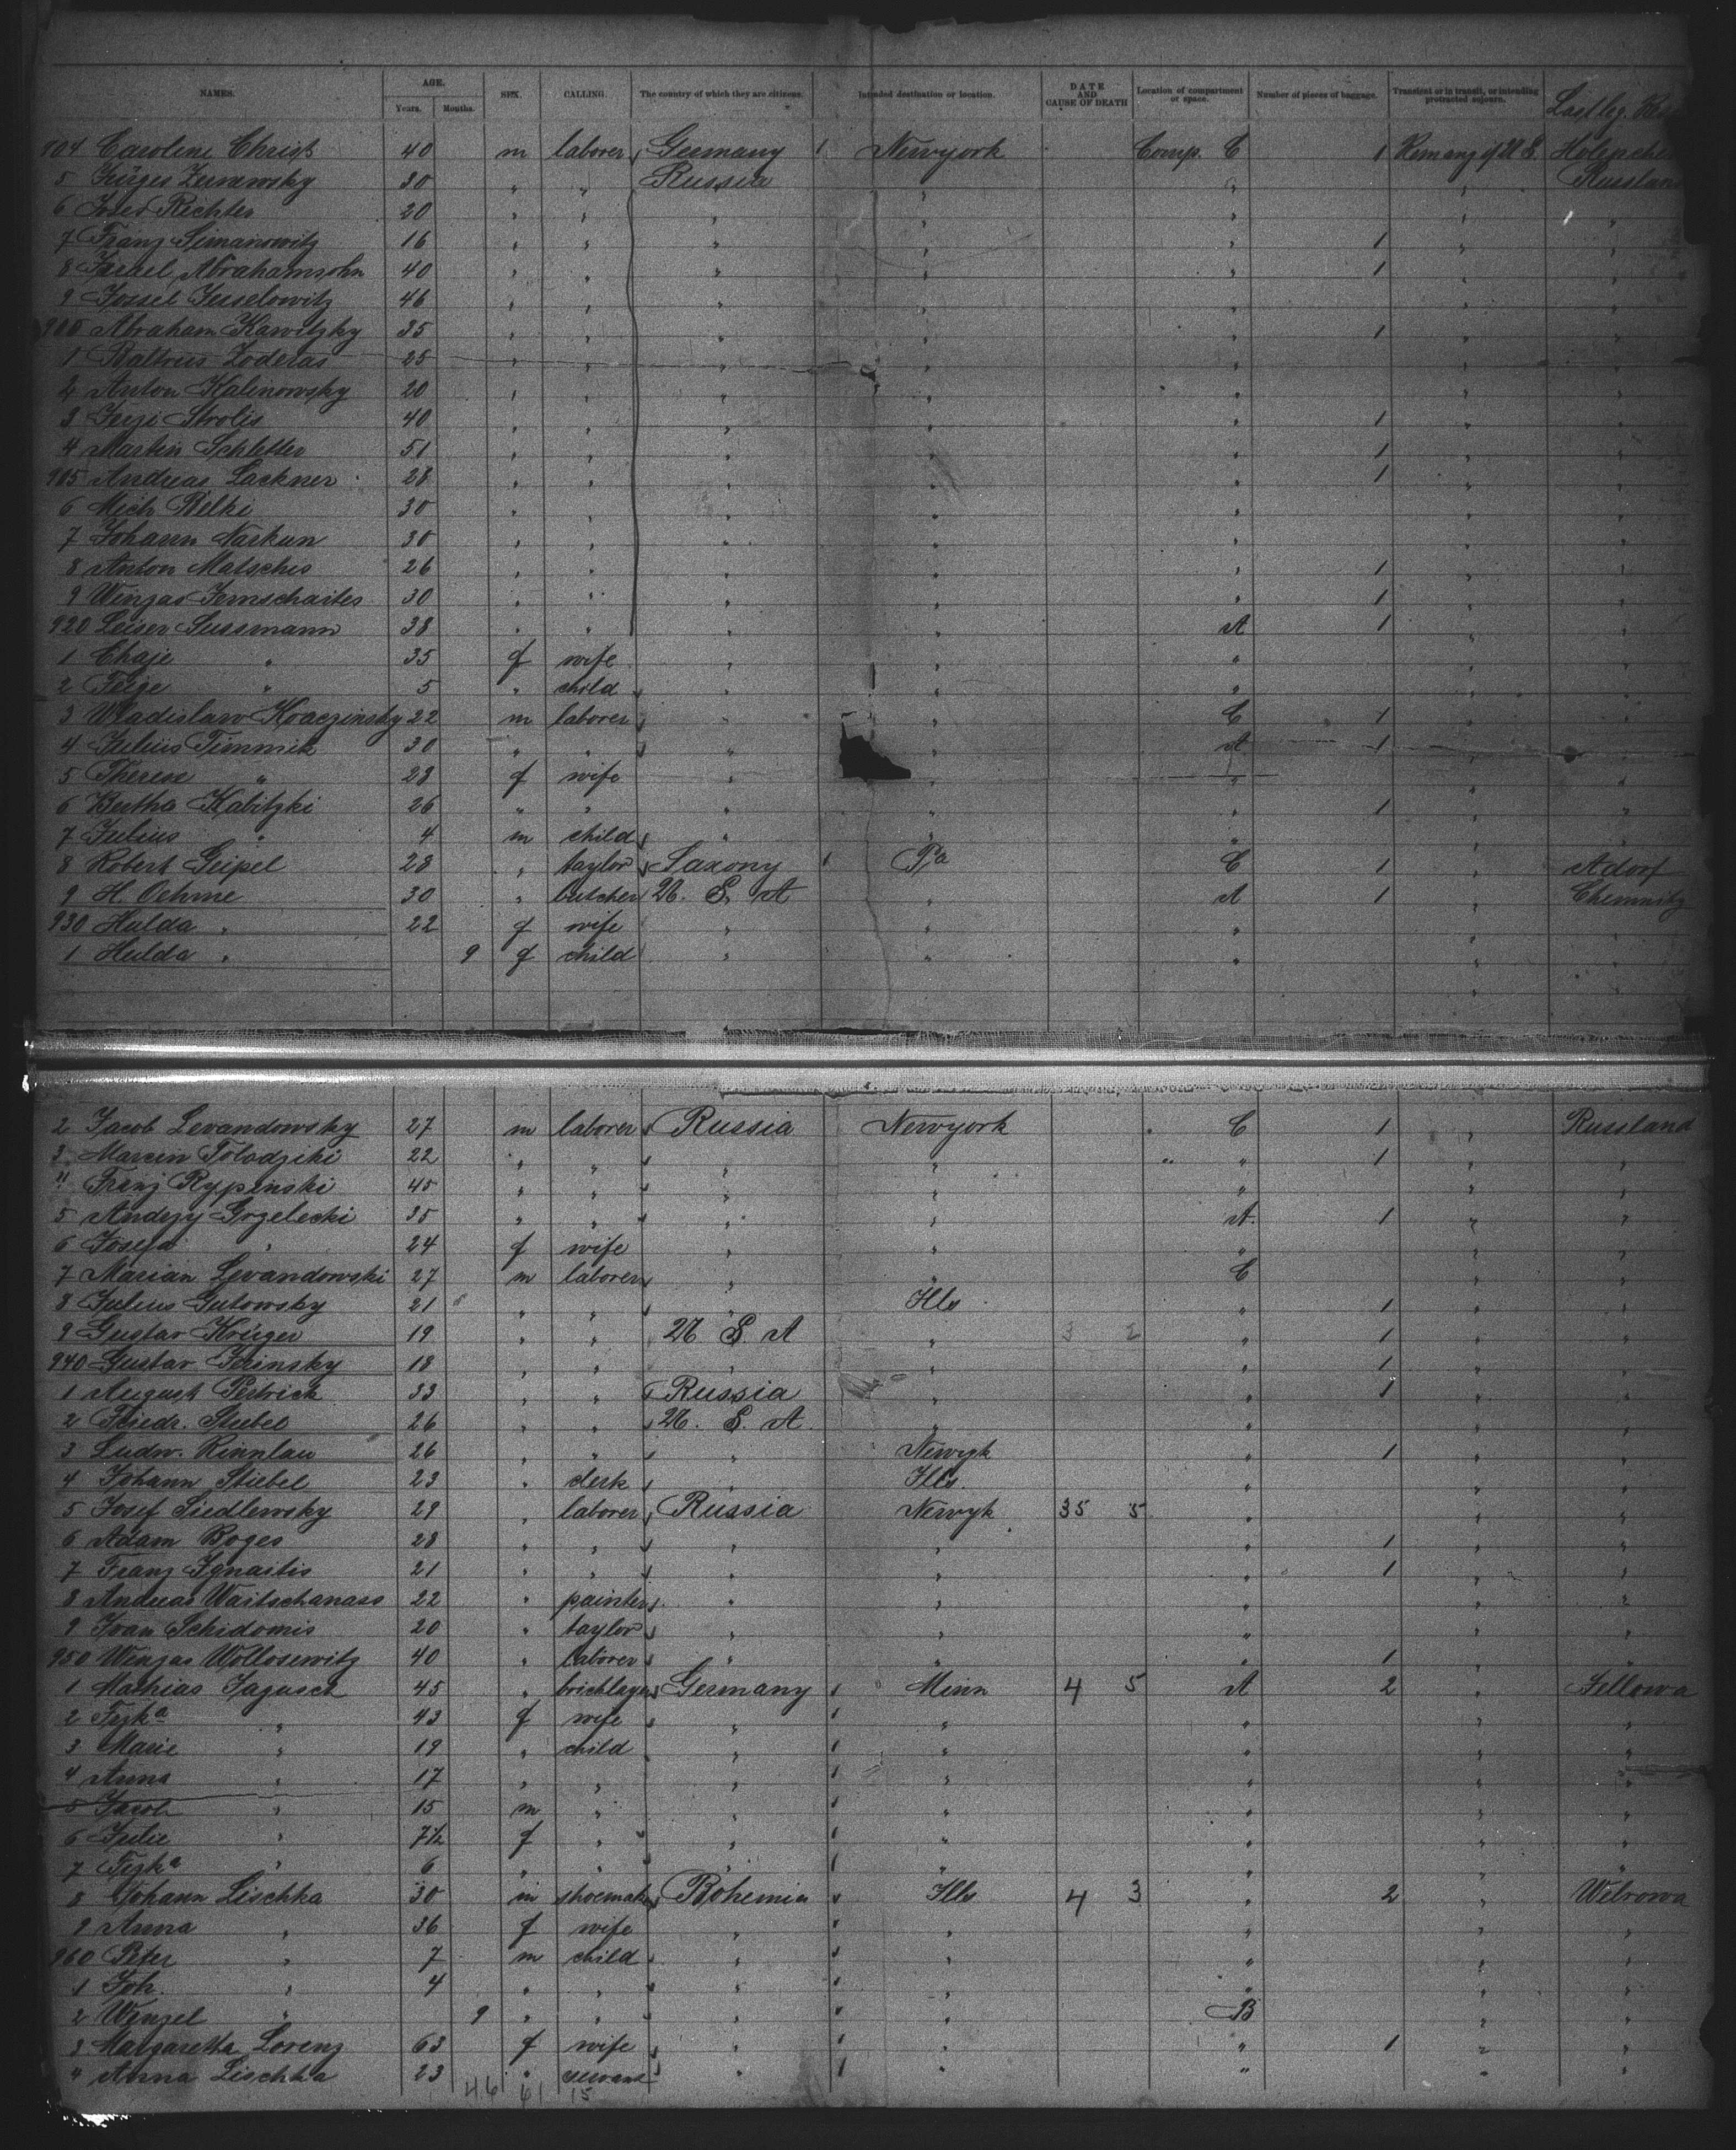 NAMES. AGE. Years. Months. SEX. CALLING. The country of which they are citizens. Intended destination or location. DATE AND CAUSE OF DEATH Location of compartment or space. Number of pieces of baggage. Transient or in transit, or intending protracted sojourn. Last leg.
904 Caroline Christ 40 m laborer Germany 1 Newyork Comp. C 1
5 30 " " Russia " " " Russland
6 Josef Richter 20 " " " " " " "
7 Franz Simanowitz 16 " " " " " 1 " "
8 Israel Abrahamsohn 40 " " " " " 1 " "
9 Jossel Jesselowitz 46 " " " " " " "
Abraham Kawitzky 35 " " " " " 1 " "
1 Baltrus Zoderas 25 " " " " " " "
2 Anton Kalinowsky 20 " " " " " " "
3 Jurgi Strolis 40 " " " " " 1 " "
4 Martin Schletter 51 " " " " " 1 " "
915 Andreas Lackner 28 " " " " " 1 " "
6 Mich Belki 30 " " " " " " "
7 Johann Narkun 30 " " " " " " "
8 Anton Matsches 26 " " " " " 1 " "
9 Winzas Jernschaites 30 " " " " " 1 " "
920 Leiser Sussmann 38 " " " " A 1 " "
1 Chaje " 35 f wife " " " " "
2 Feige " 5 " child " " " " "
3 Wladislaw Koaczinsky 22 m laborer " " C 1 " "
4 Julius Timmik 30 " " " " A 1 " "
5 Therese " 28 f wife " " " " "
6 Bertha Kabitzki 26 " " " " " 1 " "
7 Julius " 4 m child " " " " "
8 Robert Geipel 28 " taylor Saxony 1 Pa C 1 " Adorf
9 H. Oehme 30 " butcher U. S. A " A 1 " Chemnitz
930 Hulda " 22 f wife " " " "
1 Hulda " 9 f child " " " "
2 Jacob Levandowsky 27 m laborer Russia Newyork C 1 " Russland
3 Marcin Tolodziki 22 " " " " " 1 " "
4 Franz Rypinski 45 " " " " " " "
5 Andrzy Grzelecki 35 " " " " A 1 " "
6 Josefa " 24 f wife " " " " "
7 Marian Levandowski 27 m laborer " " C " "
8 Julius Gutowsky 21 " " " Ills " 1 " "
9 Gustav Krüger 19 " " U. S. A " 3 2 " 1 " "
940 Gustav Jezinsky 18 " " " " " 1 " "
1 August Petrick 33 " " Russia " " 1 " "
2 Friedr. Stubel 26 " " U. S. A " " " "
3 Ludw. Rinnlau 26 " " " Newyk " 1 " "
4 Johann Stiebel 23 " clerk " Ills. " " "
5 Josef Siedlewsky 29 " laborer Russia Newyk 35 5 " " "
6 Adam Boges 28 " " " " " 1 " "
7 Franz Ignaitis 21 " " " " " 1 " "
8 Andreas Waitschanass 22 " painter " " " " "
9 Ivan Schidomis 20 " taylor " " " " "
950 Winzas Wollosewitz 40 " laborer " " " 1 " "
1 Mathias Jagusch 45 " bricklayer Germany 1 Minn 4 5 A 2 " Jellowa
2 Fzka " 43 f wife " " " " "
3 Marie " 19 " child " " " " "
4 Anna " 17 " " " " " " "
5 Jacob " 15 m " " " " " "
6 Julie " 7½ f " " " " " "
7 Fzka " 6 " " " " " " "
8 Johann Lischka 30 m shoemaker Bohemia " Ills 4 3 " 2 " Welrowa
9 Anna " 36 f wife " " " " "
960 Peter " 7 m child " " " " "
1 Joh. " 4 " " " " " " "
2 Wenzel " 9 " " " " B " "
3 Margaretha Lorenz 63 f wife " " " 1 " "
4 Anna Lischka 23 " servant " " " " "
46 61 15